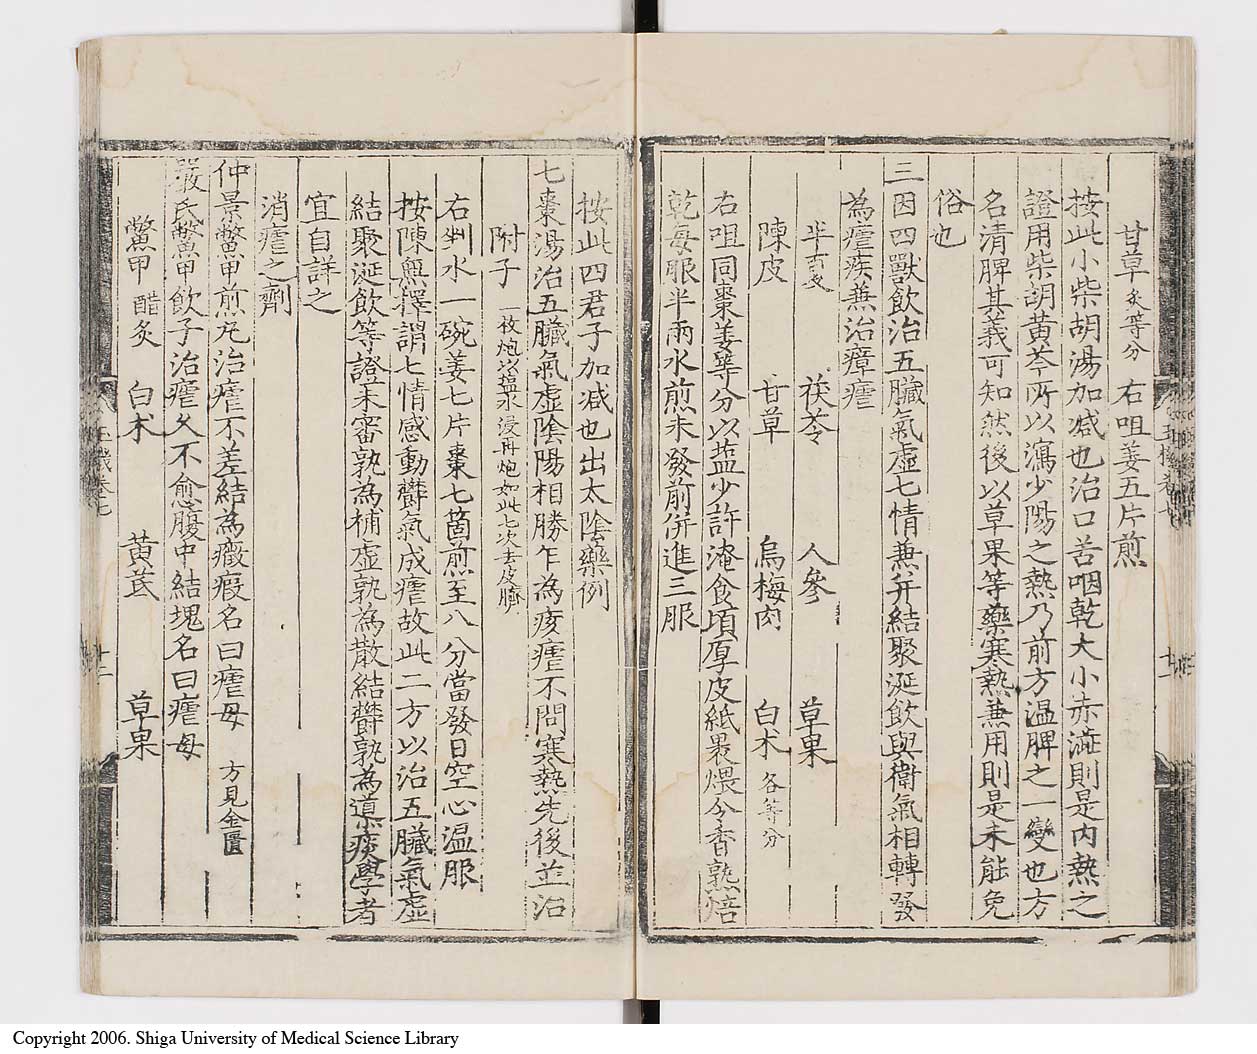 甘草炙等分 右㕮咀姜五片煎
按此小柴胡湯加减也治口苦咽乾大小赤澁則是内熱之
證用柴胡黄芩所以瀉少陽之熱乃前方温脾之一變也方
名清脾其義可知然後以草果等藥寒熱兼用則是未能免
俗也
三因四獸飲治五臟氣虚七情兼并結聚涎飲與衛氣相轉發
為瘧疾兼治瘴瘧
半夏 茯苓 人參 草果
陳皮 甘草 烏梅肉 白朮各等分
右咀同棗姜等分以盐少許淹食頃厚皮紙褁煨令香熟焙
乾每服半兩水煎未發前併進三服
按此四君子加减也出太陰藥例
七棗湯治五臟氣虚陰陽相勝乍為痎瘧不問寒熱先後並治
附子一枚炮以塩水浸再炮如此七次去皮臍
右剉水一碗姜七片棗七箇煎至八分當發日空心温服
按陳無擇謂七情感動鬱氣成瘧故此二方以治五臟氣虚
結聚涎飲等證未審孰為補虚孰為散結鬱孰為導痰學者
宜自詳之
消瘧之劑
仲景鱉甲煎丸治瘧不差結為癥瘕名曰瘧母 方見金匱
嚴氏鱉甲飲子治瘧久不愈腹中結塊名曰瘧母
鱉甲醋炙 白朮 黄芪 草果
玉機卷七
十二
Copyright 2006. Shiga University of Medical Science Library